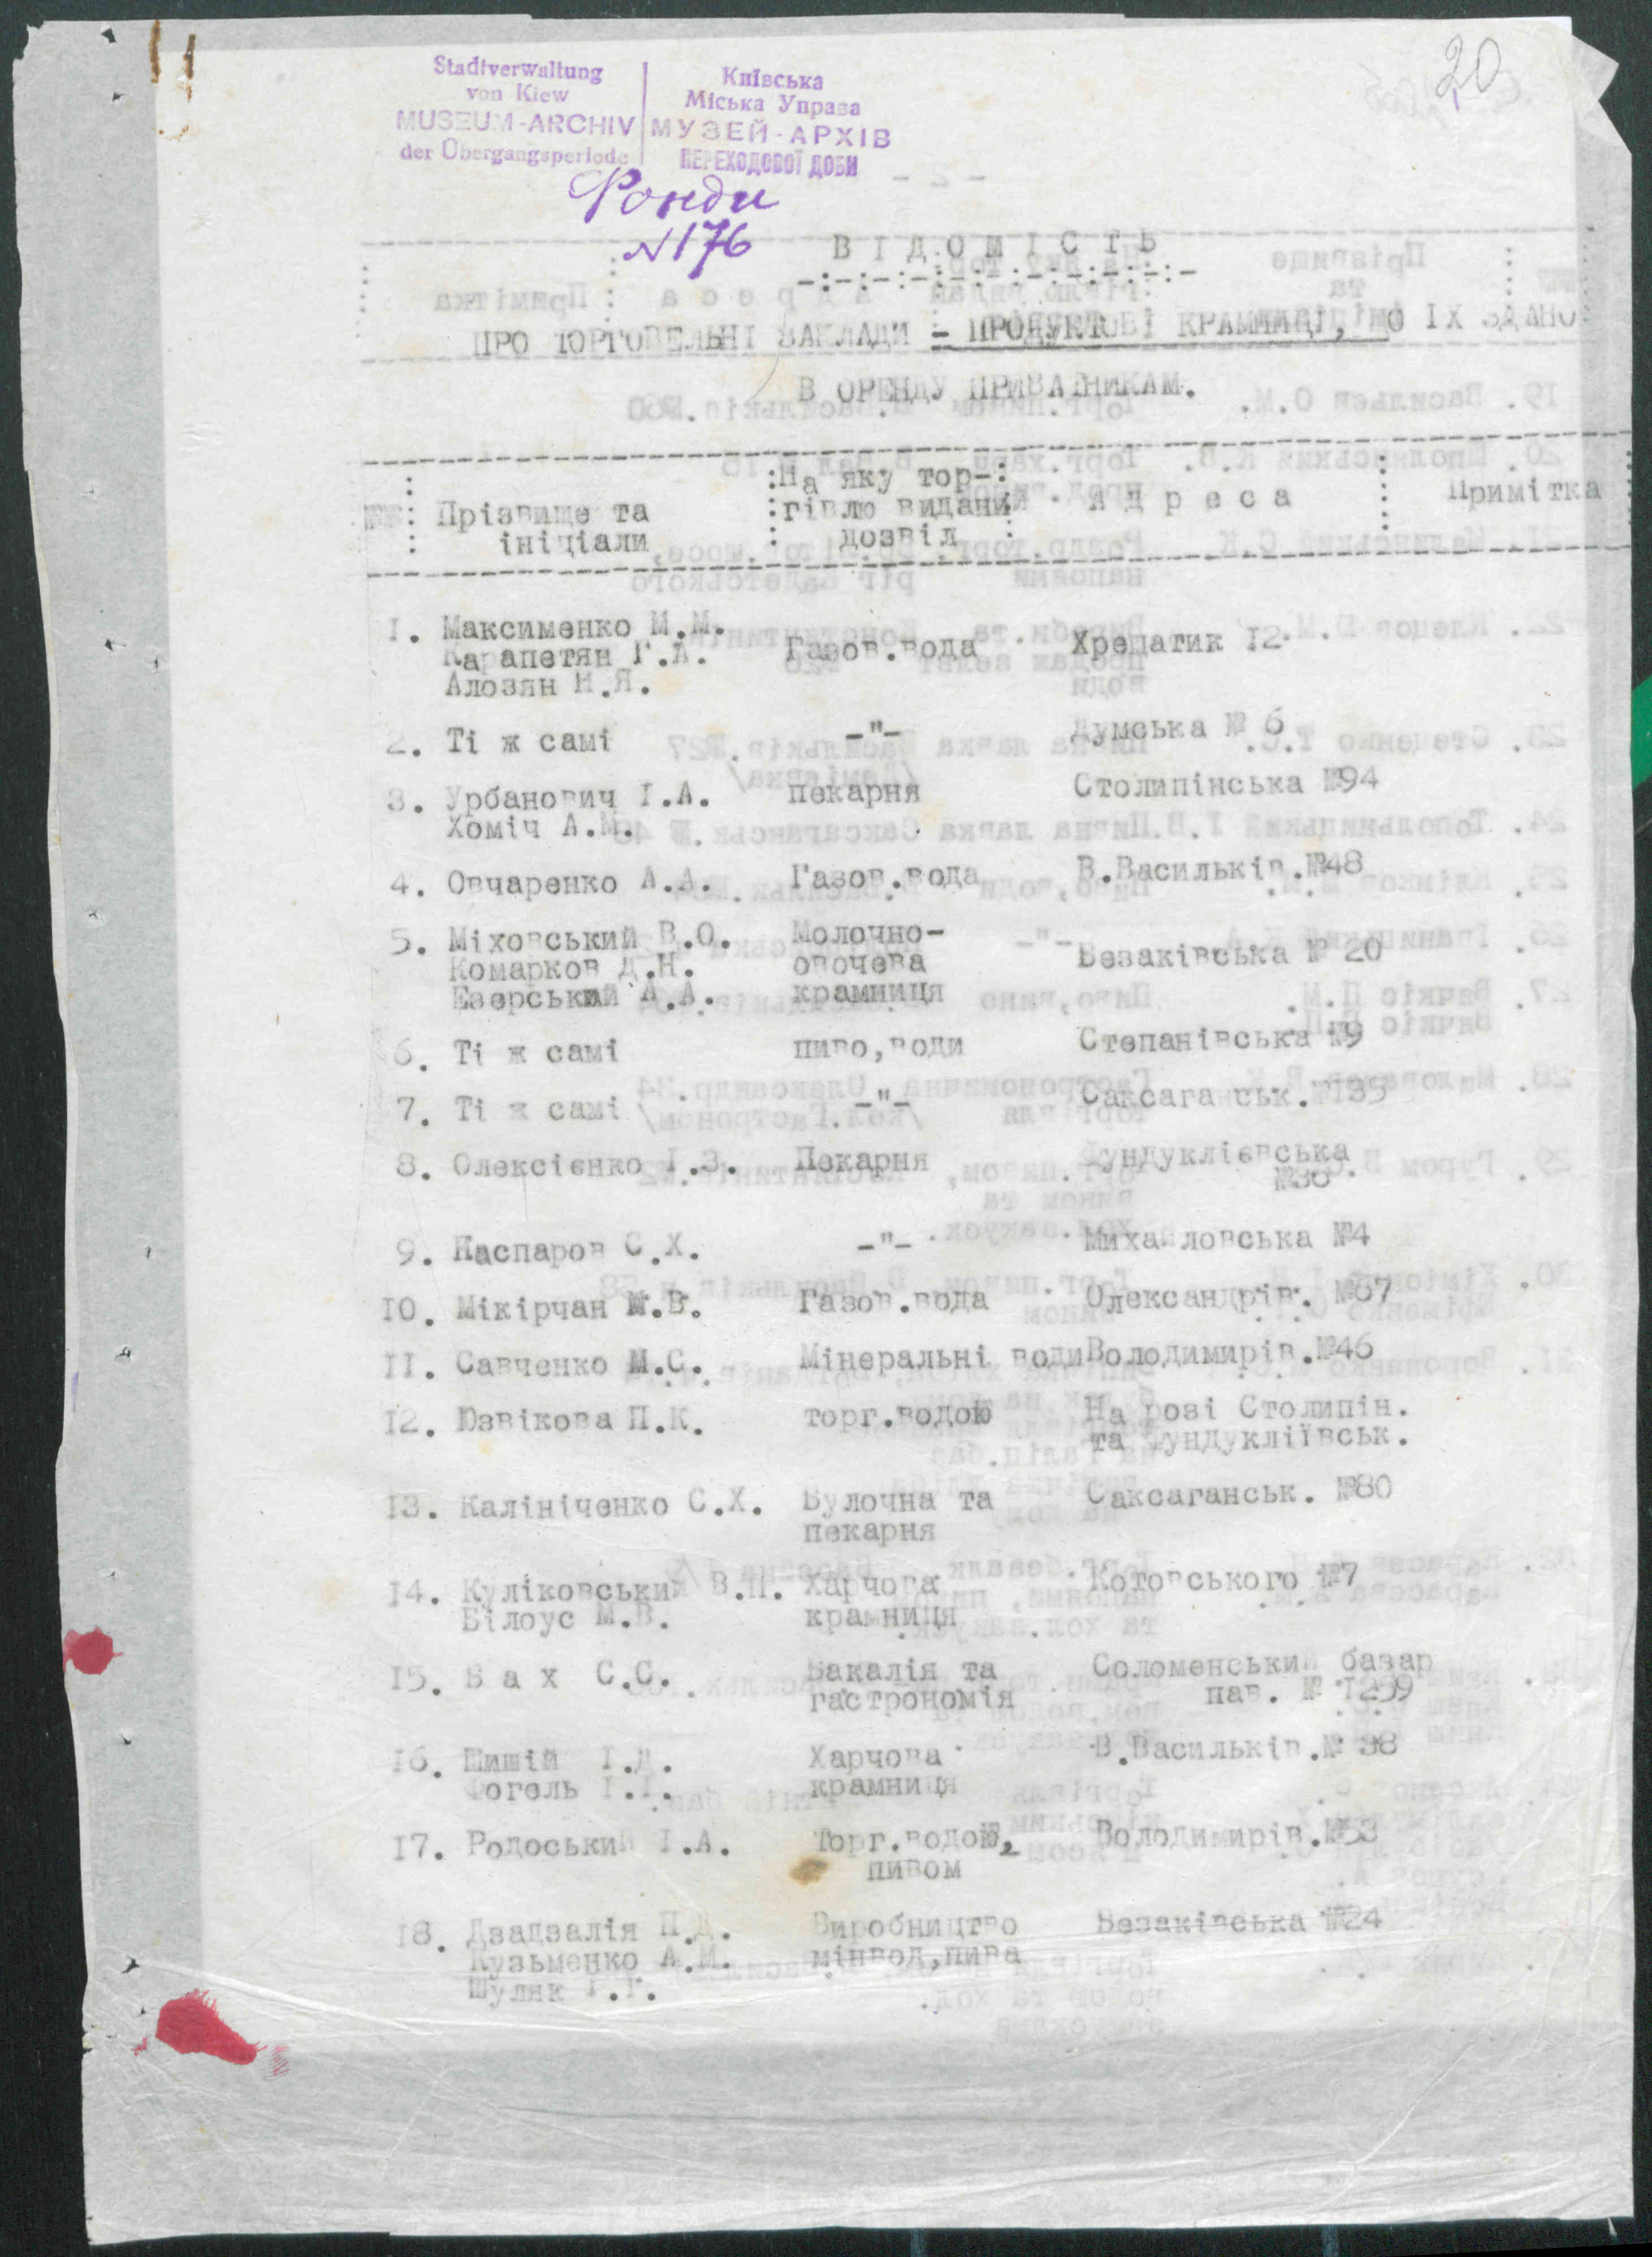 20
Stadtverwaltung
von Kiew
MUSEUM-ARCHIV
der Übergangsperiode
Київська
Міська Управа
МУЗЕЙ-АРХІВ
ПЕРЕХОДОВОЇ ДОБИ
Фонди
№176
ВІДОМІСТЬ
ПРО ТОРГОВЕЛЬНІ ЗАКЛАДИ - ПРОДУКТОВІ КРАМНИЦІ, ЩО ЇХ ЗДАНО
В ОРЕНДУ ПРИВАТНИКАМ.
№№ : Прізвище та ініціали : На яку тор-гівлю видани дозвіл : Адреса : Примітка
1. Максименко М.М.
Карапетян Г.А. Газов.вода Хрещатик 12
Алозян Н.Я.
2. Ті ж самі -"- Думська № 6
3. Урбанович І.А. пекарня Столипінська №94
Хоміч А.М.
4. Овчаренко А.А. Газов.вода В.Васильків.№48
5. Міховський В.О. Молочно-
Комарков Д.Н. овочева Безаківська № 20
Езерський А.А. крамниця
6. Ті ж самі пиво,води Степанівська №9
7. Ті ж самі -"- Саксаганськ. №135
8. Олексієнко І.З. Пекарня Фундуклієвська
№36
9. Каспаров С.Х. -"- Михайловська №4
10. Мікірчан М.В. Газов.вода Олександрів. №67
11. Савченко М.С. Мінеральні води Володимирів.№46
12. Юзвікова П.К. торг.водою На розі Столипін.
та Фундукліївськ.
13. Калініченко С.Х. Булочна та Саксаганськ. №80
пекарня
14. Куліковський В.П. Харчова Котовського №7
Білоус М.В. крамниця
15. Бах С.С. Бакалія та Соломенський базар
гастрономія пав. № 1259
16. Шишій І.Д. Харчова В.Васильків.№ 38
Фогель І.І. крамниця
17. Родоський І.А. Торг.водою, Володимирів.№53
пивом
18. Дзадзалія П.Д. Виробництво Безаківська №24
Кузьменко А.М. мінвод,пива
Шуляк Г.Г.